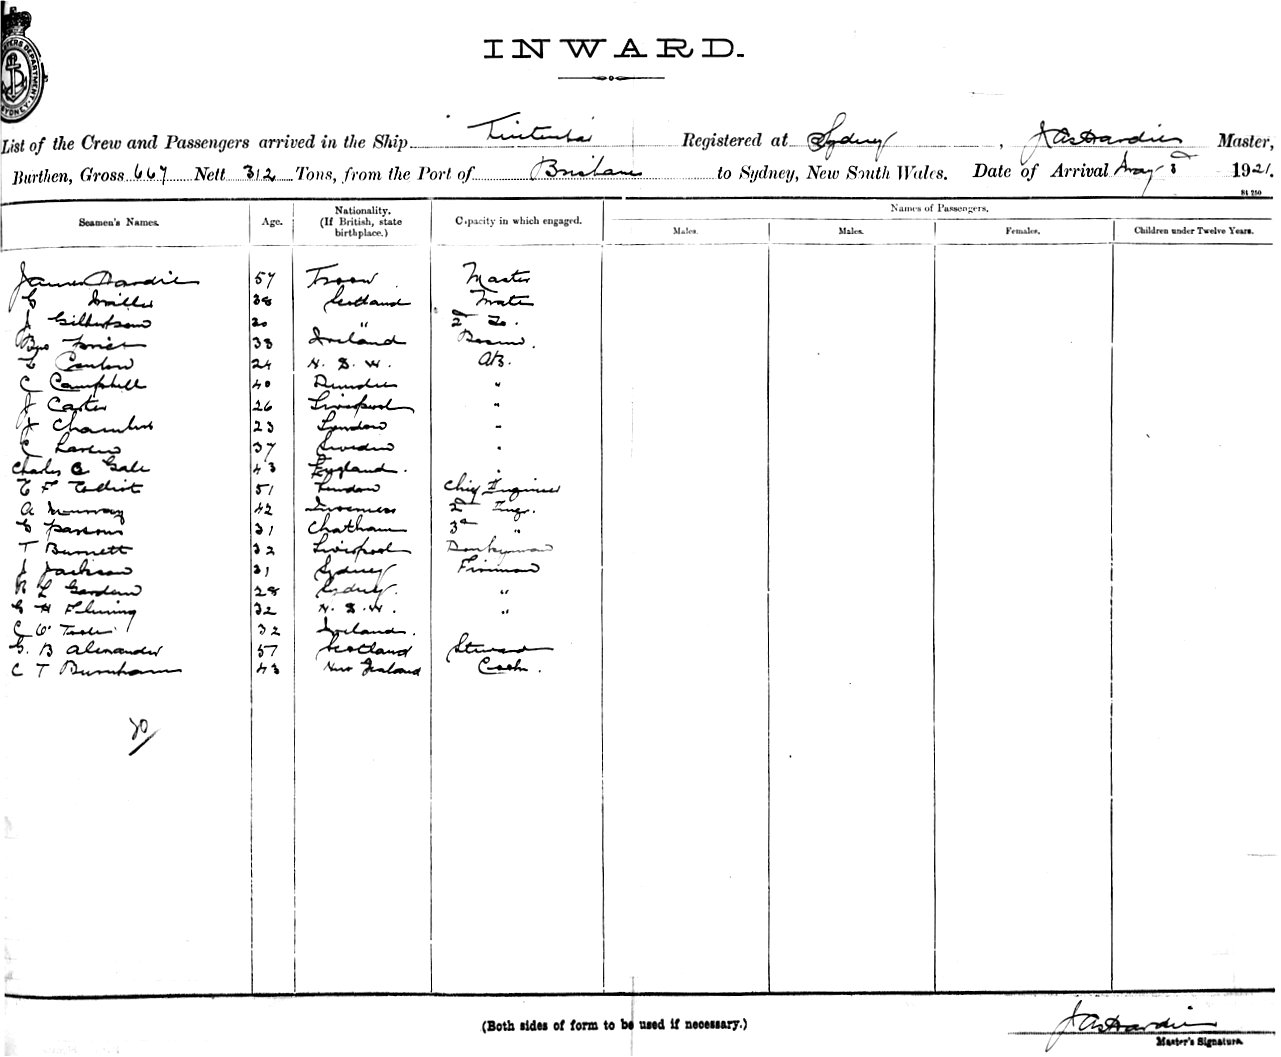 INWARD.
List of the Crew and Passengers arrived in the Ship Tintenbar Registered at Sydney, Jas Hardie Master,
Burthen, Gross 667 Nett 312 Tons, from the Port of Brisbane to Sydney, New South Wales. Date of Arrival May 1921.
84 250
Seamen's Names. Age. Nationality. (If British, state birthplace.) Capacity in which engaged. Names of Passengers.
Males. Males. Females. Children under Twelve Years.
James Hardie 57 Troon Master
Miller 38 Scotland Mate
J Gilbertson 20 " 2nd Do.
38 Ireland Bosun.
24 N. S. W. AB.
C Campbell 40 Dundee "
J Carter 26 Liverpool "
J Chambers 23 London "
C Larsen 37 Sweden "
Charles Gale 43 England. "
51 London Chief Engineer
A Murray 42 Inverness 2nd Engr.
Parsons 31 Chatham 3rd "
T Burnett 32 Liverpool Donkeyman
J Jackson 31 Sydney Fireman
28 Sydney. "
H Fleming 32 N. S. W. "
32 Ireland.
B Alexander 57 Scotland Steward
C T Burnham 43 New Zealand Cook.
20
(Both sides of form to be used if necessary.)
Jas Hardie
Master's Signature.